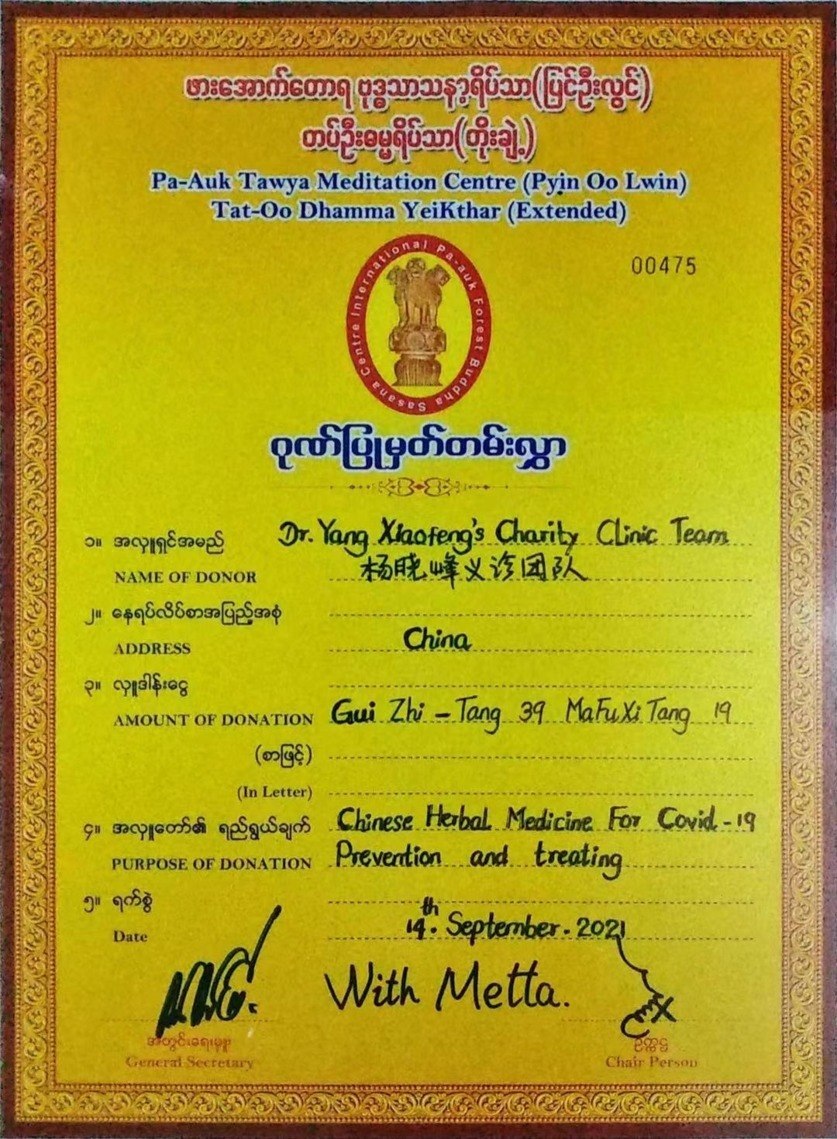 ဖားအောက်တောရ ဗုဒ္ဓသာသနာ့ရိပ်သာ(ပြင်ဦးလွင်)
တပ်ဦးဓမ္မရိပ်သာ(တိုးချဲ့)
Pa-Auk Tawya Meditation Centre (Pyin Oo Lwin)
Tat-Oo Dhamma YeiKthar (Extended)
00475
International Pa-auk Forest Buddha Sasana Centre
ဂုဏ်ပြုမှတ်တမ်းလွှာ
၁။ အလှူရှင်အမည် Dr. Yang Xiaofeng's Charity Clinic Team
NAME OF DONOR 杨晓峰义诊团队
၂။ နေရပ်လိပ်စာအပြည့်အစုံ
ADDRESS China
၃။ လှူဒါန်းငွေ
AMOUNT OF DONATION Gui Zhi - Tang 39 MaFuXi Tang 19
(စာဖြင့်)
(In Letter)
၄။ အလှူတော်၏ ရည်ရွယ်ချက် Chinese Herbal Medicine For Covid-19
PURPOSE OF DONATION Prevention and treating
၅။ ရက်စွဲ
Date 14th. September. 2021
With Metta.
အတွင်းရေးမှူး ဥက္ကဋ္ဌ
General Secretary Chair Person